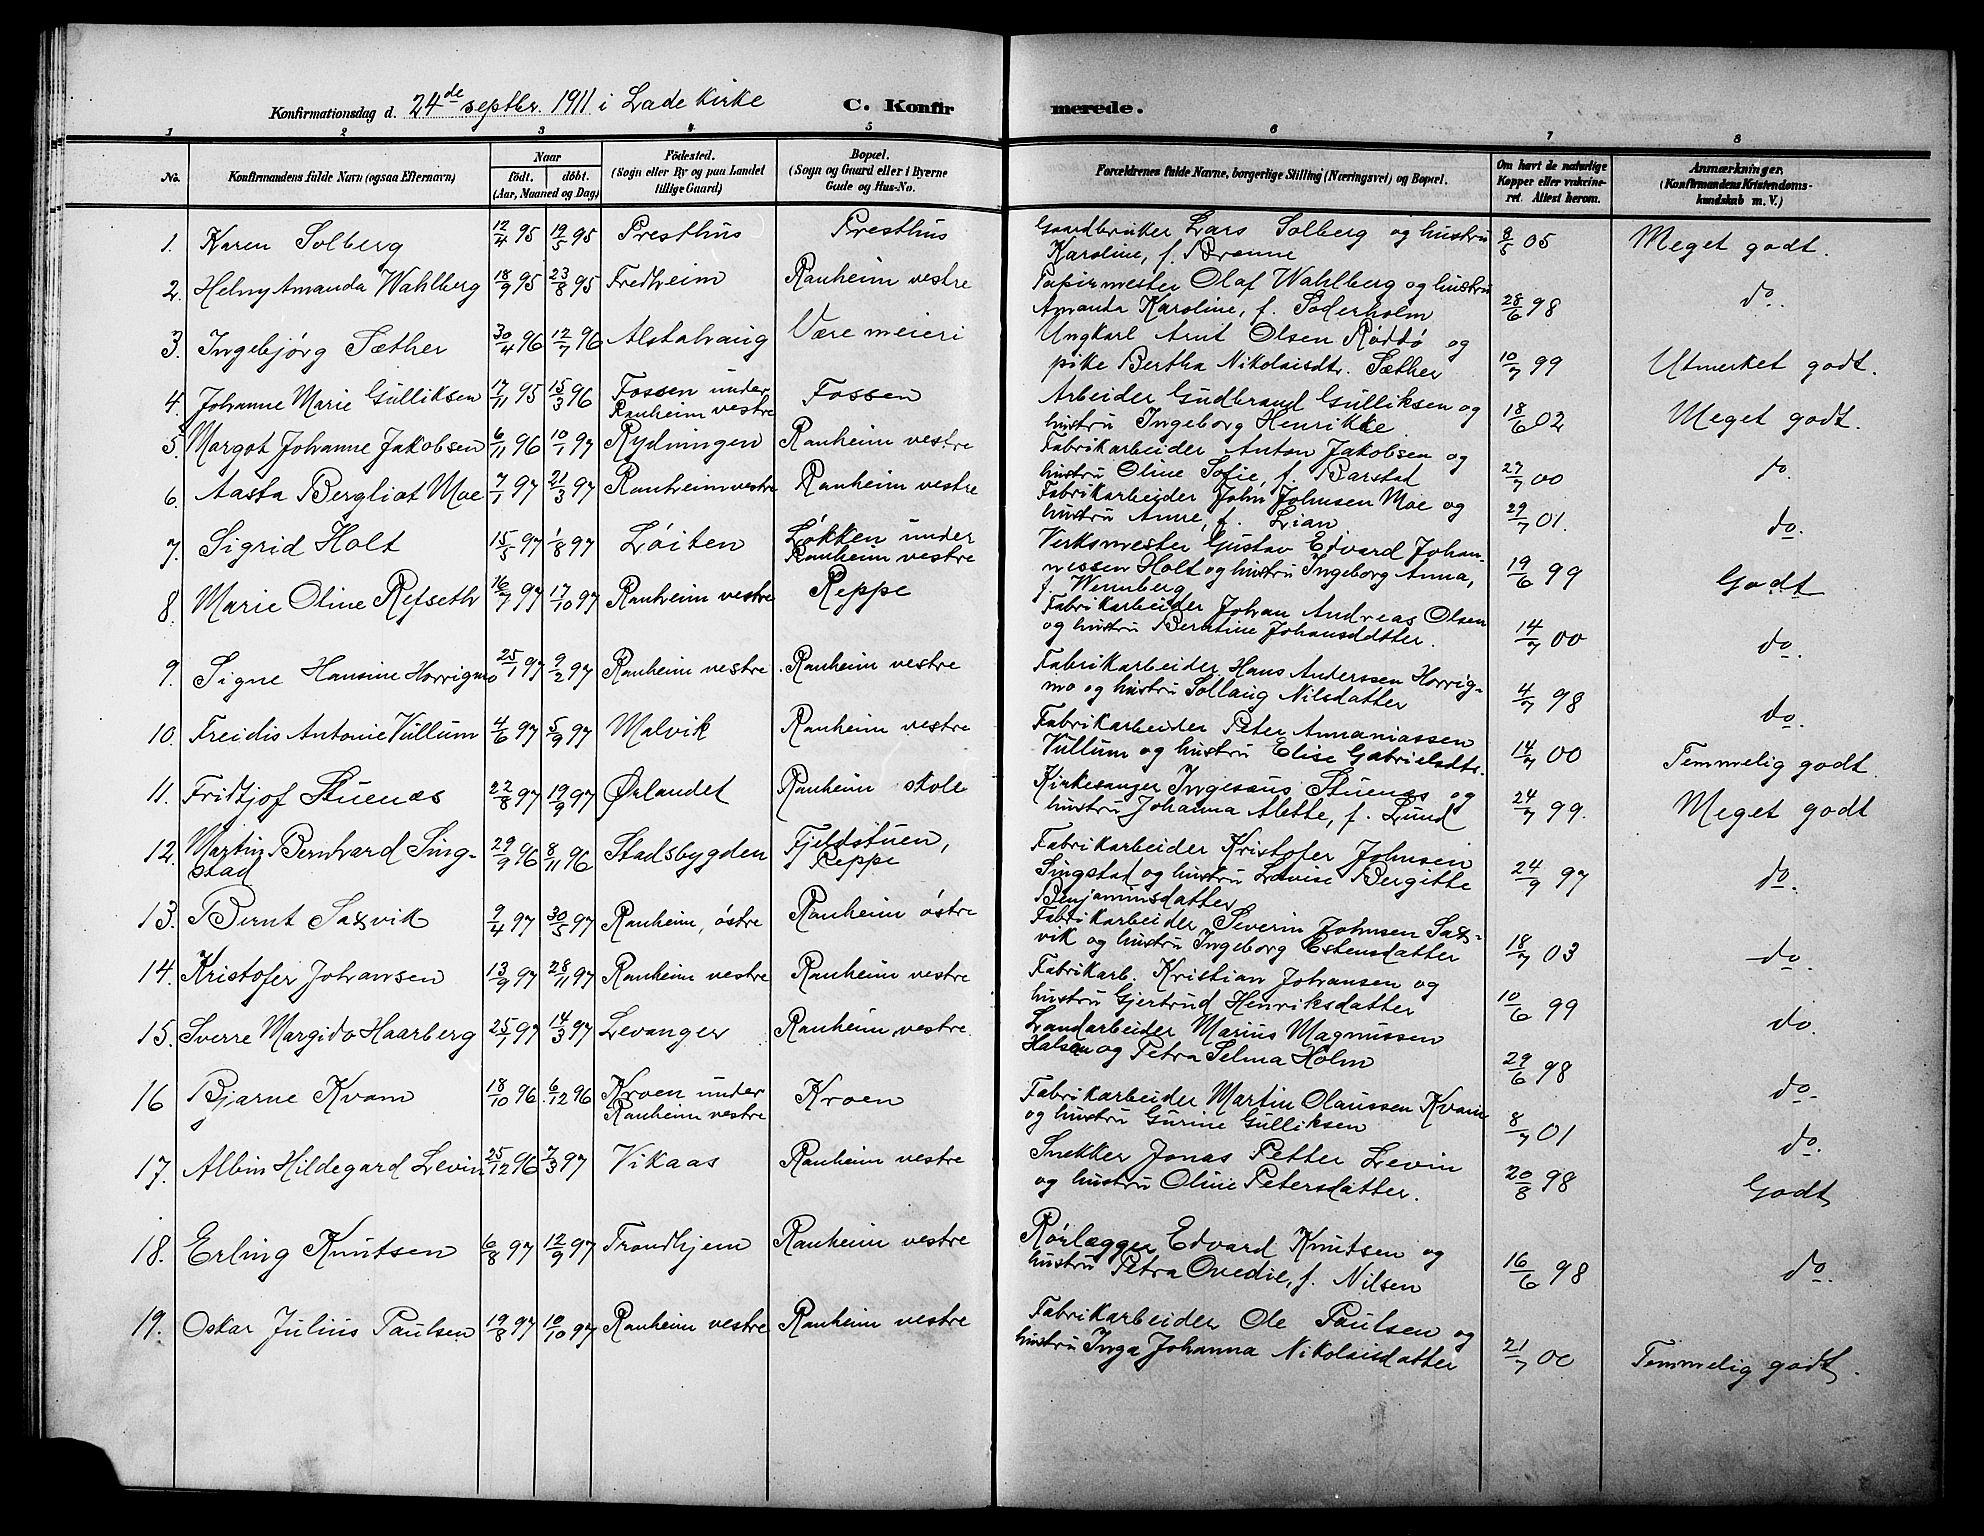 Konfirmationsdag d. 24de septbr. 1911 i Lade kirke
C. Konfirmerede.
1 2 3 4 5 6 7 8
No.
Konfirmandens fulde Navn (ogsaa Efternavn)
Naar
födt. döbt.
(Aar, Maaned og Dag)
Födested.
(Sogn eller By og paa Landet
tillige Gaard)
Bopæl.
(Sogn og Gaard eller i Byerne
Gade og Hus-No.
Forældrenes fulde Navne, borgerlige Stilling (Næringsvei) og Bopæl.
Om havt de naturlige
Kopper eller vakcine-
ret. Attest herom.
Anmærkninger.
(Konfirmandens Kristendoms-
kundskab m. V.)
1. Karen Solberg 12/4 95 19/5 95 Presthus Presthus Gaardbruker Lars Solberg og hustru
Karoline, f. Brønne 8/5 05 Meget godt.
2. Helny Amanda Wahlberg 18/9 95 23/8 95 Fredheim Ranheim vestre Papirmester Olaf Wahlberg og hustru
Amanda Karoline, f. Söderholm 28/6 98 do.
3. Ingebjørg Sæther 30/4 96 12/7 96 Alstahaug Være meieri Ungkarl Arnt Olsen Røddø og
pike Bertha Nikolaisdtr. Sæther 10/7 99 Utmerket godt.
4. Johanne Marie Gulliksen 17/11 95 15/3 96 Fossen under
Ranheim vestre Fossen Arbeider Gudbrand Gulliksen og
hustru Ingeborg Henrikke 18/6 02 Meget godt.
5. Margot Johanne Jakobsen 6/11 96 10/1 97 Rydningen Ranheim vestre Fabrikarbeider Anton Jakobsen og
hustru Oline Sofie, f. Barstad 27/7 00 do.
6. Aasta Bergliot Moe 7/1 97 21/3 97 Ranheim vestre Ranheim vestre Fabrikarbeider John Johnsen Moe og
hustru Anne, f. Lian 29/7 01. do.
7. Sigrid Holt 15/5 97 1/8 97 Løiten Løkken under
Ranheim vestre Verksmester Gustav Edvard Johan-
nessen Holt og hustru Ingeborg Anna,
f. Wennberg 19/6 99 Godt
8. Marie Oline Refseth 16/7 97 17/10 97 Ranheim vestre Reppe Fabrikarbeider Johan Andreas Olsen
og hustru Berntine Johansdatter. 14/7 00 do.
9. Signe Hansine Horrigmo 25/1 97 9/2 97 Ranheim vestre Ranheim vestre Fabrikarbeider Hans Anderssen Horrig-
mo og hustru Sollaug Nilsdatter 4/7 98 do.
10. Freidis Antonie Vullum 4/6 97 5/9 97 Malvik Ranheim vestre Fabrikarbeider Peter Annaniassen
Vullum og hustru Elise Gabrielsdtr. 14/7 00 Temmelig godt.
11. Fridtjof Stuenæs 22/8 97 19/9 97 Ørlandet Ranheim skole Kirkesanger Stuenes og
hustru Johanna Alette, f. Lund 24/7 99. Meget godt
12. Martin Bernhard Sing-
stad 29/9 96 8/11 96 Stadsbygden Fjeldstuen,
Reppe Fabrikarbeider Kristofer Johnsen
Singstad og hustru Lovise Bergitte
Benjaminsdatter 24/9 97 do.
13. Bernt Saxvik 9/4 97 30/5 97 Ranheim, östre Ranheim östre Fabrikarbeider Severin Johnsen Sax-
vik og hustru Ingeborg Estensdatter 18/7 03 do.
14. Kristofer Johansen 13/9 97 28/11 97 Ranheim vestre Ranheim vestre Fabrikarb. Kristian Johansen og
hustru Gjertrud Henriksdatter 10/6 99 do.
15. Sverre Margido Haarberg 25/1 97 14/3 97 Levanger Ranheim vestre. Landarbeider Marius Magnussen
Halsen og Petra Selma Holm 29/6 98 do.
16 Bjarne Kvam 18/10 96 6/12 96 Kroen under
Ranheim vestre Kroen Fabrikarbeider Martin Olaussen Kvam
og hustru Gurine Gulliksen 8/7 01 do.
17. Albin Hildegard Levin 25/12 96 7/3 97 Vikaas Ranheim vestre Snekker Jonas Petter Levin
og hustru Oline Petersdatter. 20/8 98 Godt
18. Erling Knutsen 6/8 97 12/9 97 Trondhjem Ranheim vestre Rørlægger Edvard Knutsen og
hustru Petra Ovedie, f. Nilsen 16/6 98 do.
19. Oskar Julius Paulsen 19/8 97 10/10 97 Ranheim vestre Ranheim vestre Fabrikarbeider Ole Paulsen og
hustru Inga Johanna Nikolaisdatter 21/7 00 Temmelig godt.